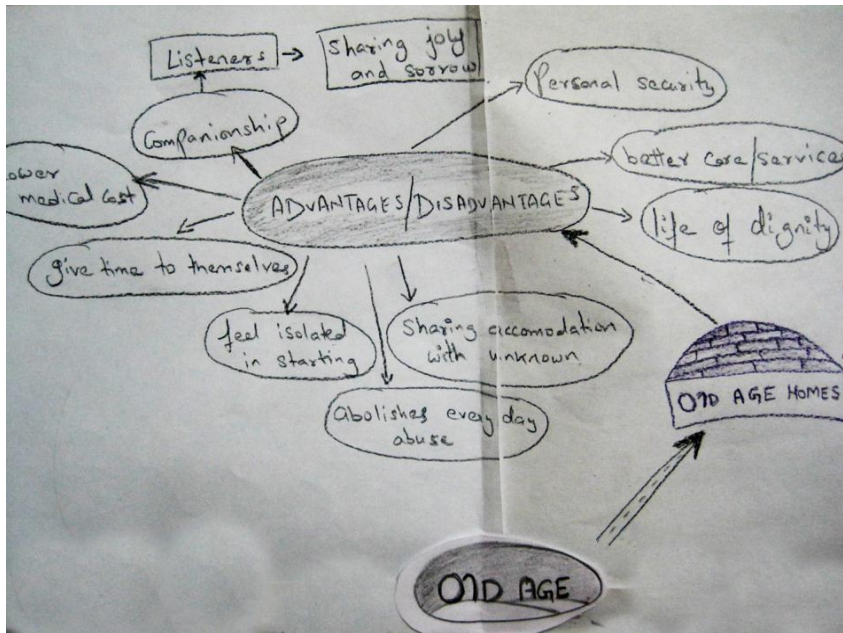 Listeners
Sharing joly
and sorrow
Personal security
Companionship
better care/services
ower
medical cost
ADVANTAGES/DISADVANTAGES
life of dignity
give time to themselves
feel isolated
in starting
Sharing accomodation
with unknown
OLD AGE HOMES
Abolishes every day
abuse
OLD AGE